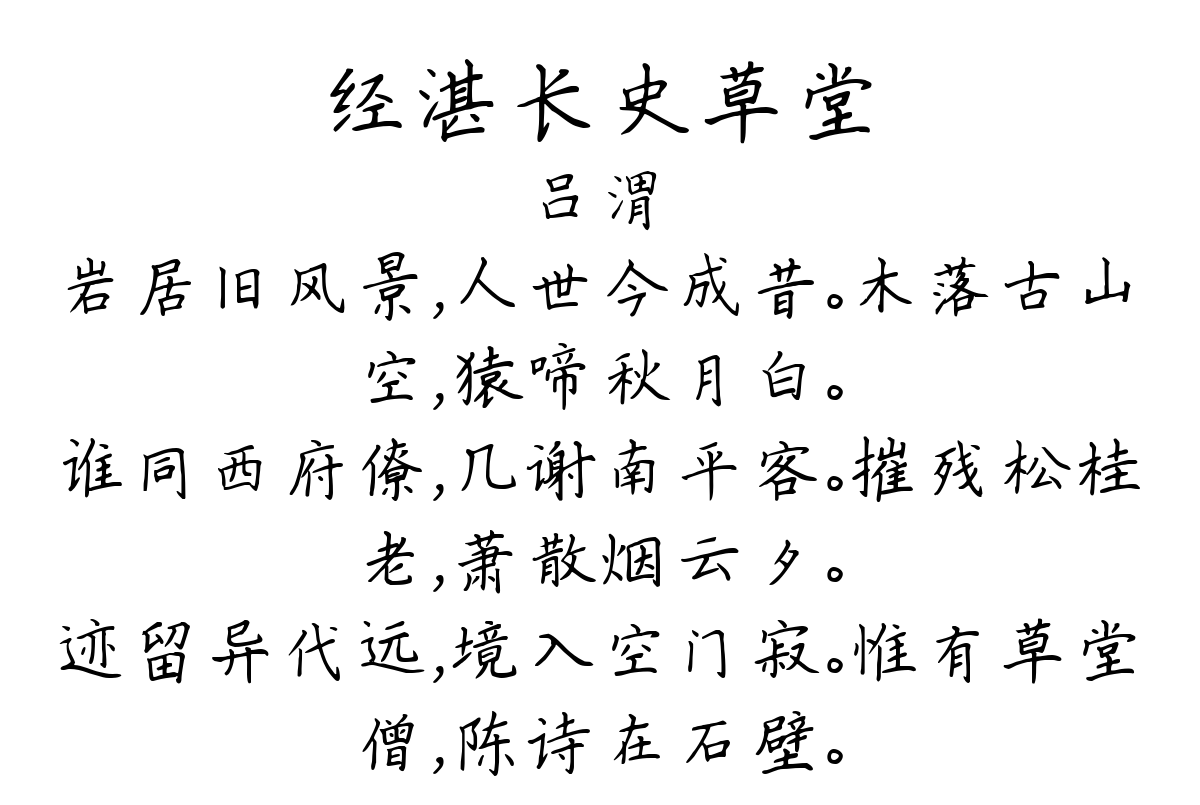 经湛长史草堂
吕渭
岩居旧风景,人世今成昔。木落古山
空,猿啼秋月白。
谁同西府僚,几谢南平客。摧残松桂
老,萧散烟云夕。
迹留异代远,境入空门寂。惟有草堂
僧,陈诗在石壁。